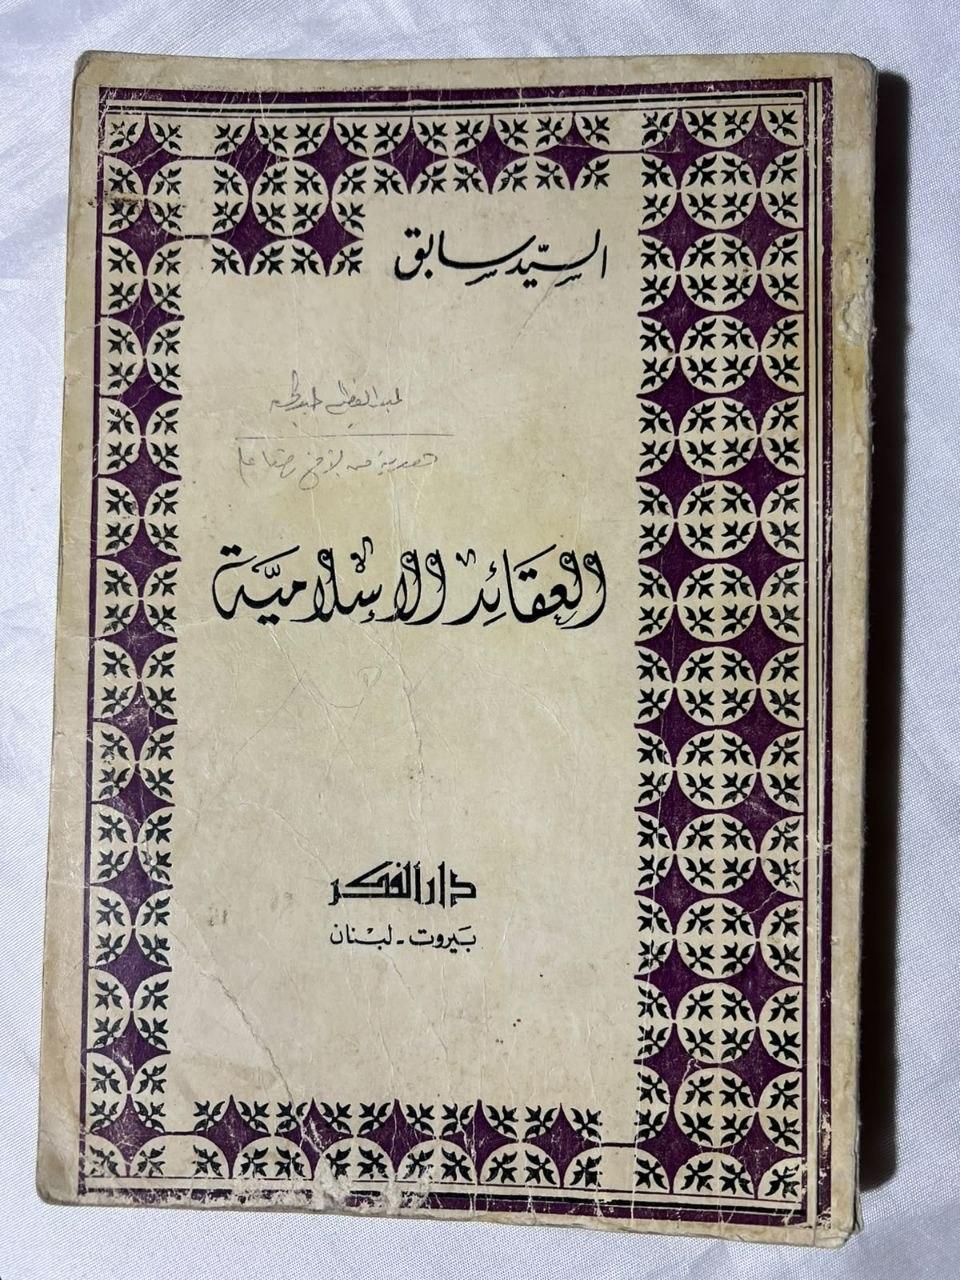 السيّد سابق
العقائد الإسلاميّة
دار الفكر
بيروت - لبنان